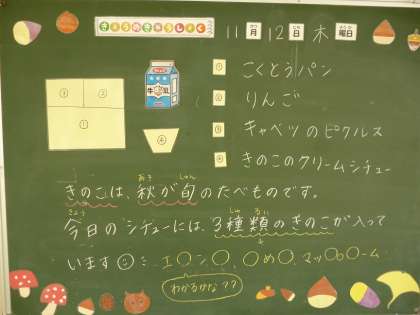 きょうのきゅうしょく
11月12日木曜日
① こくとうパン
② りんご
③ キャベツのピクルス
④ きのこのクリームシチュー
牛乳
③ ②
①
④
きのこは、秋が旬のたべものです。
今日のシチューには、3種類のきのこが入って
います エ〇ン〇、〇め〇、マッ〇〇ーム
わかるかな??